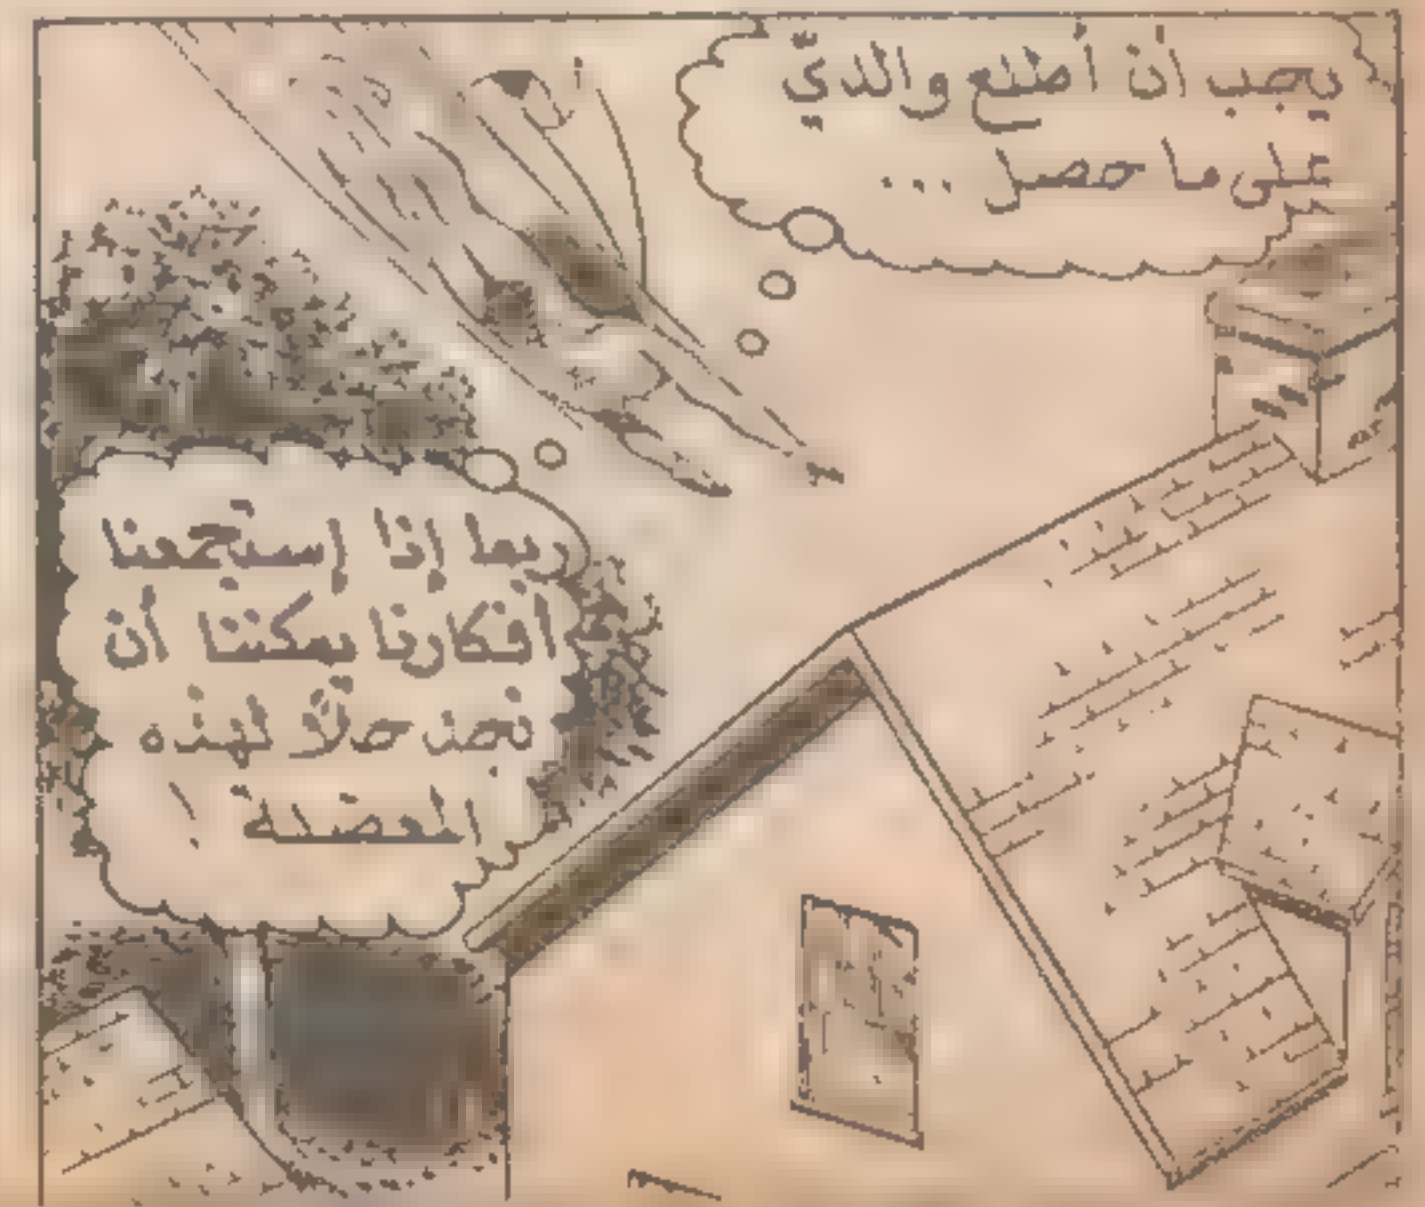 يجب أن أطلع والديّ
على ما حصل ...
ربما إذا إستجمعنا
أفكارنا يمكننا أن
نجد حلاًّ لهذه
المعضلة !